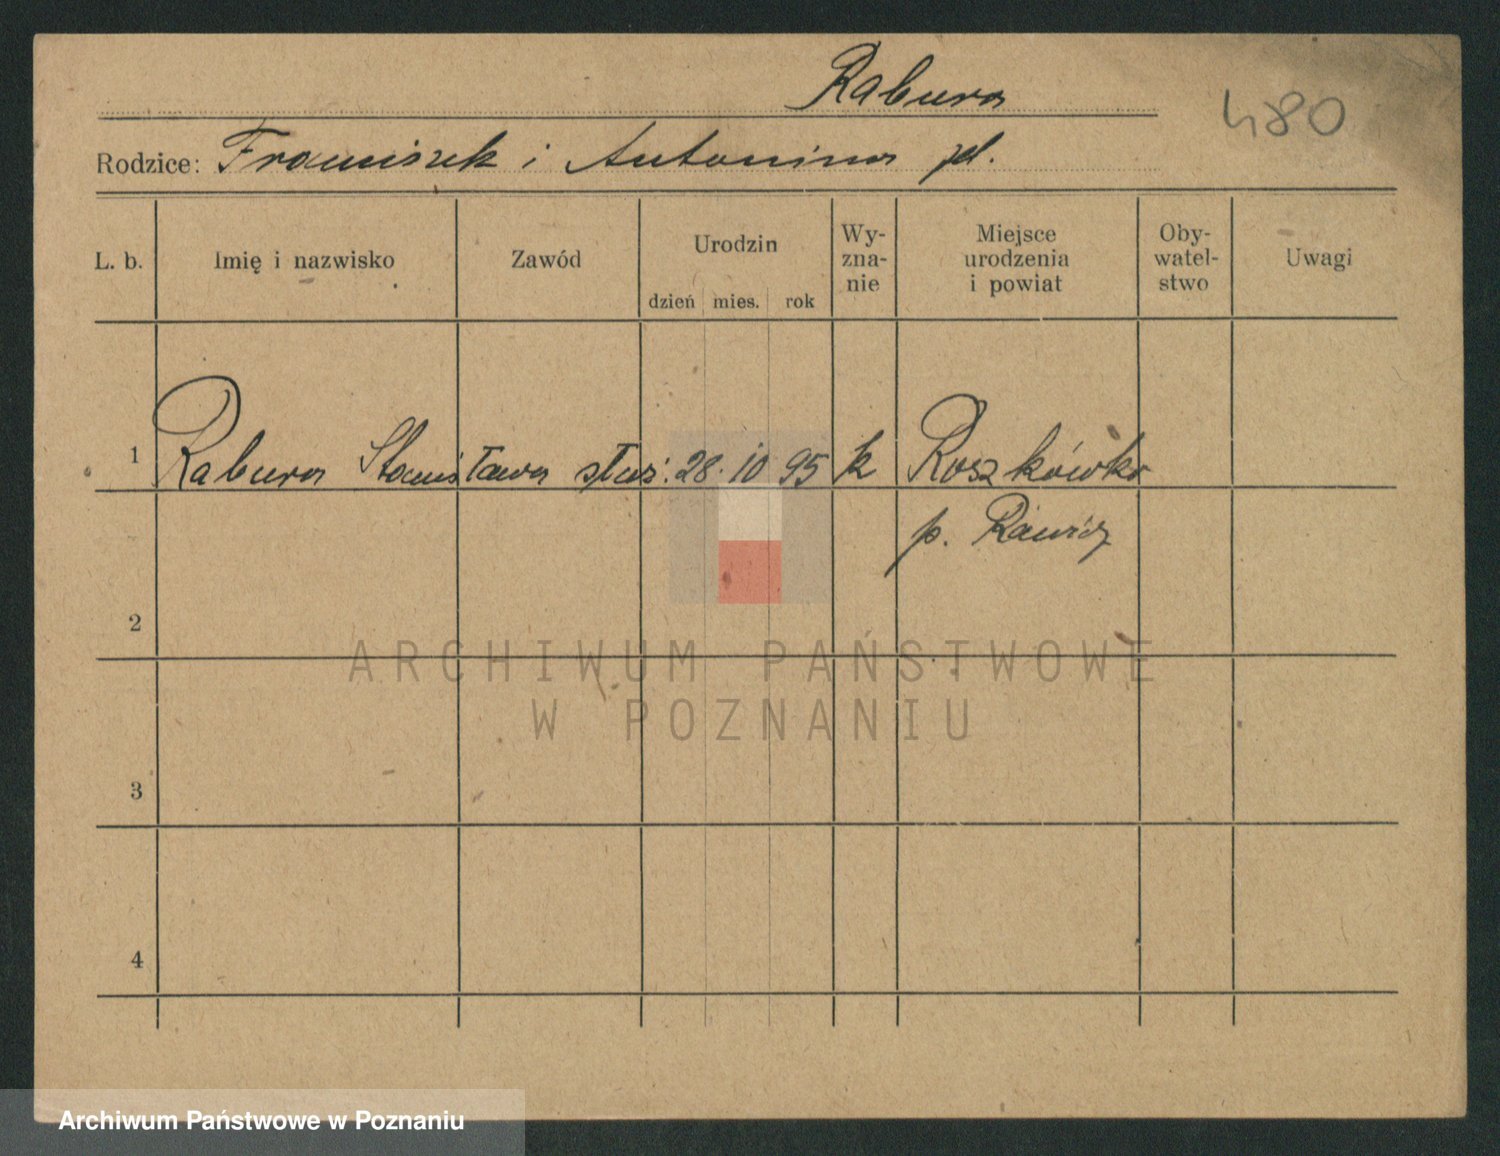 Rabura
480
Rodzice: Franciszek i Antonina
L. b. Imię i nazwisko Zawód Urodzin dzień mies. rok Wy-zna-nie Miejsce urodzenia i powiat Oby-watel-stwo Uwagi
1 Rabura Stanisława służ. 28. 10 95 k Roszkówko
p. Rawicz
2
ARCHIWUM PAŃSTWOWE
W POZNANIU
3
4
Archiwum Państwowe w Poznaniu